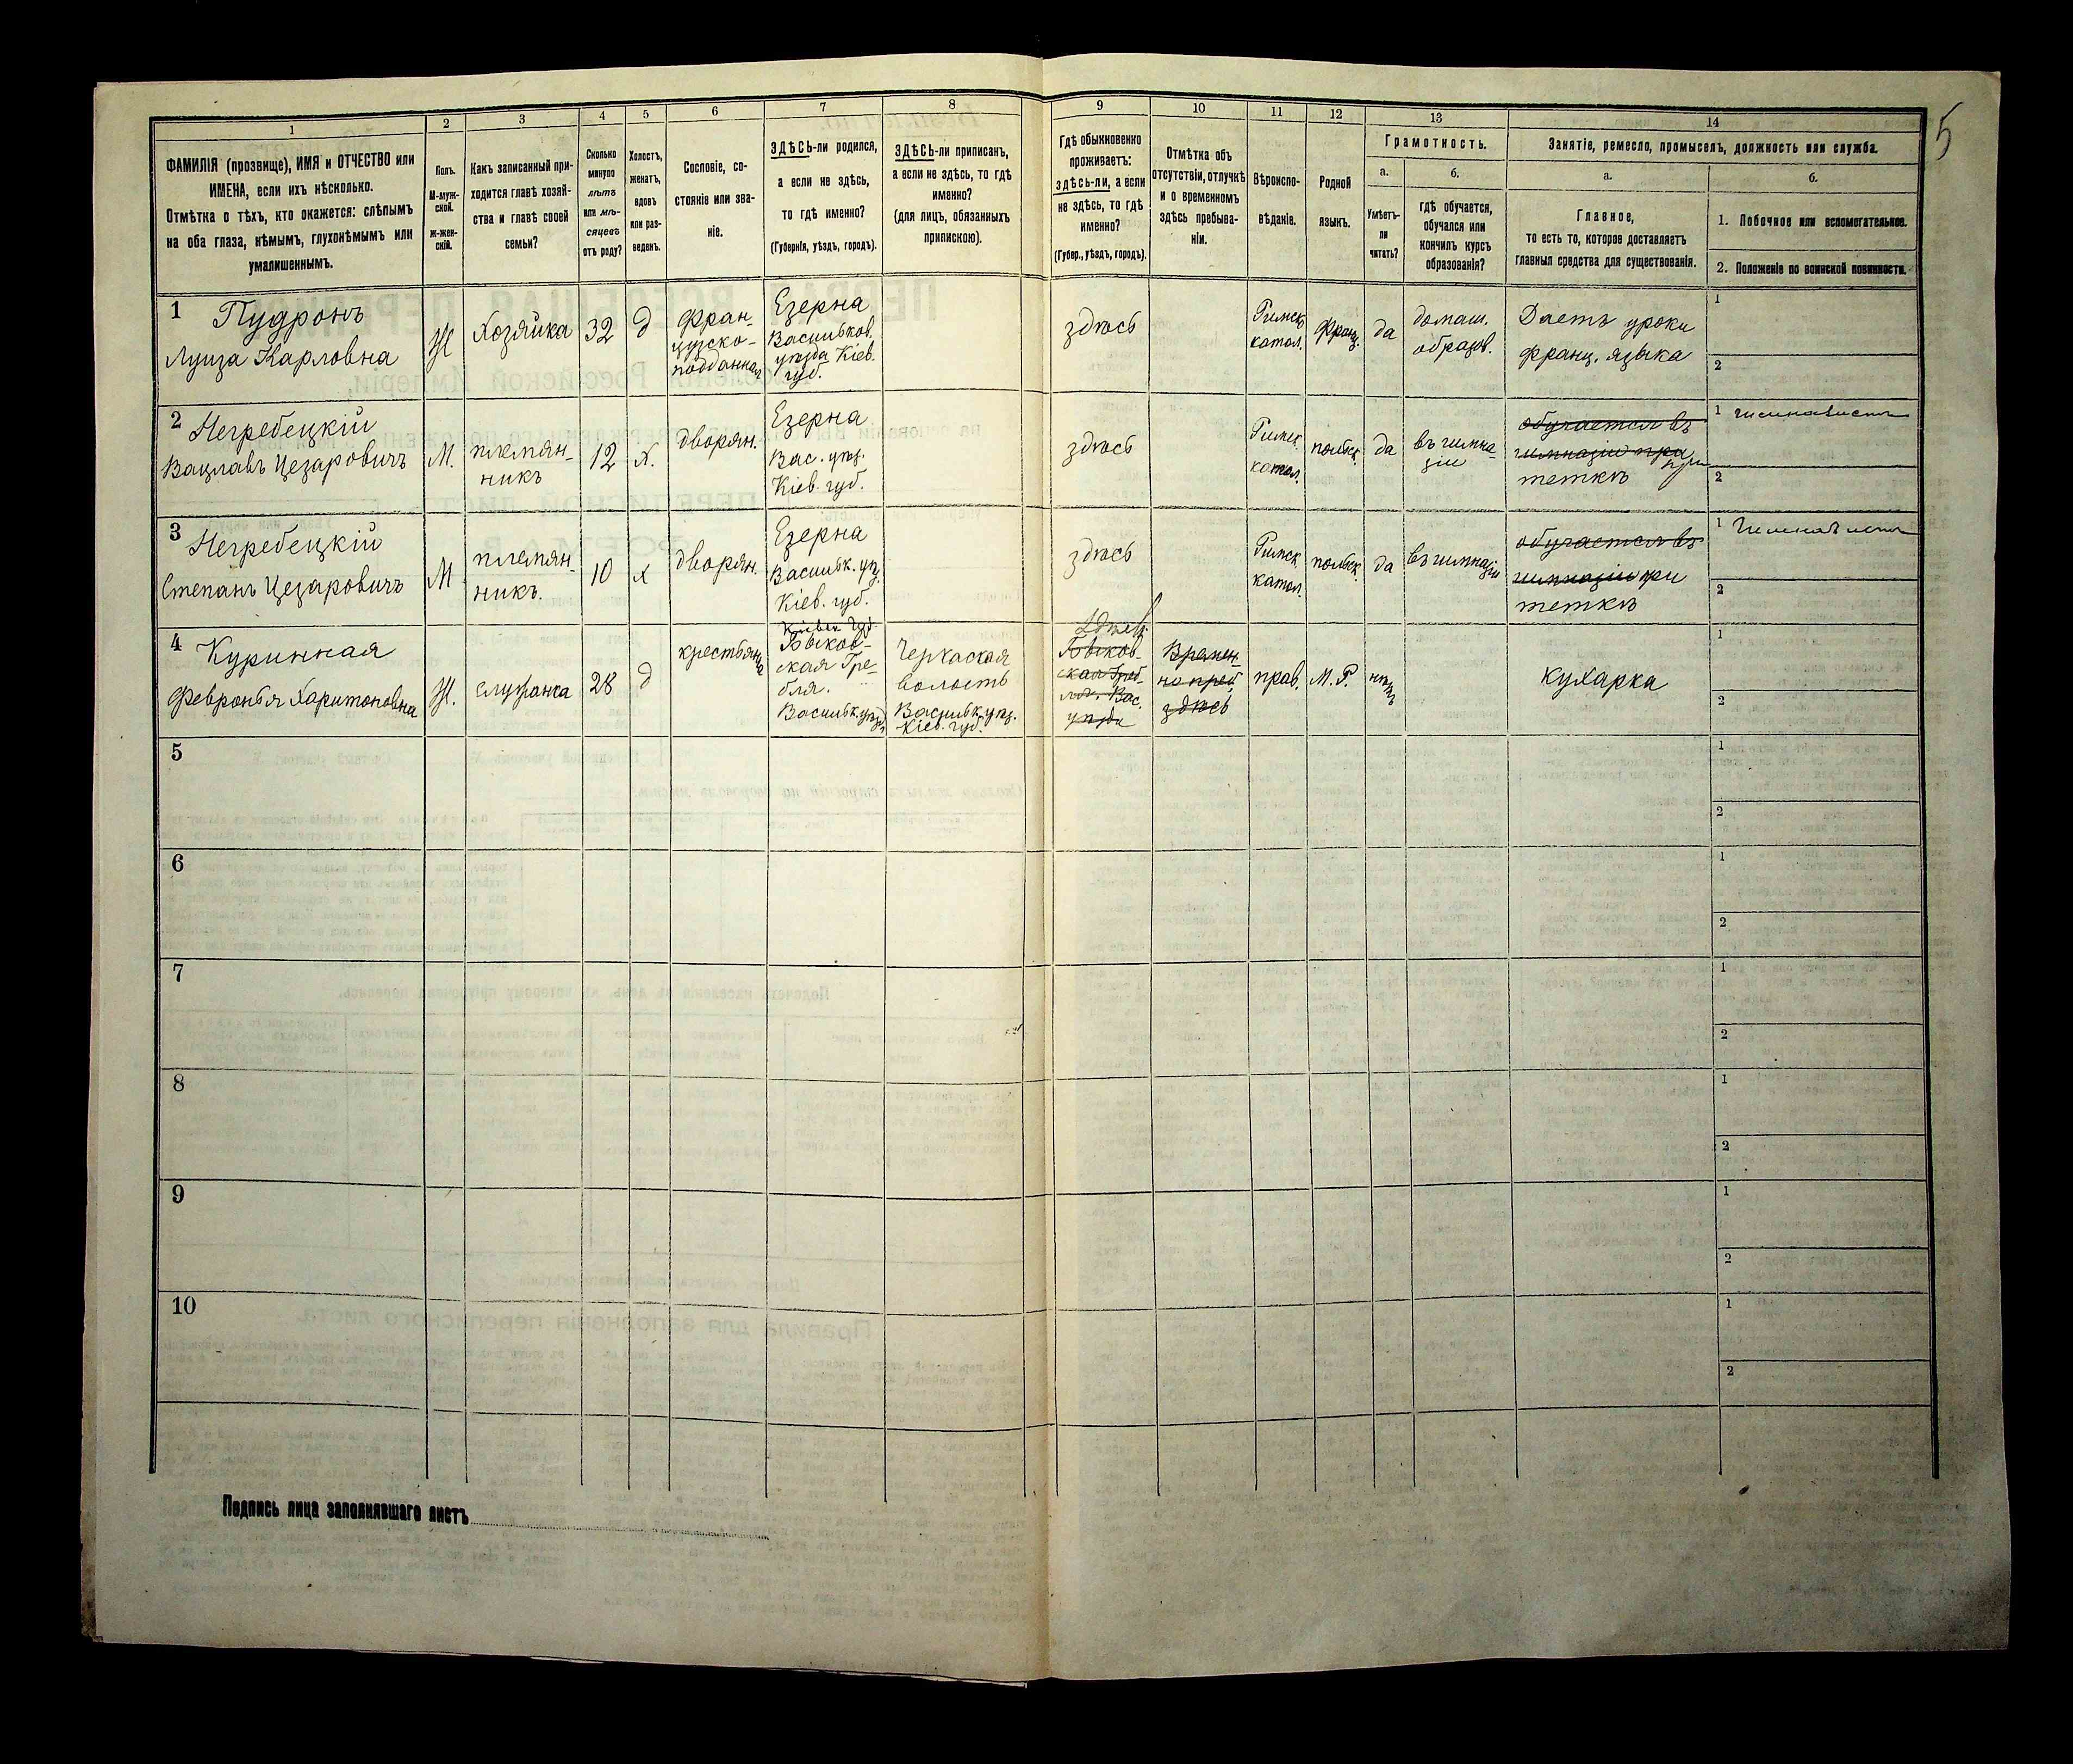 5
1
2
3
4
5
6
7
8
9
10
11
12
13
14
ФАМИЛІЯ (прозвище), ИМЯ и ОТЧЕСТВО или
ИМЕНА, если ихъ нѣсколько.
Отмѣтка о тѣхъ, кто окажется: слѣпымъ
на оба глаза, нѣмымъ, глухонѣмымъ или
умалишеннымъ.
Полъ.
М-муж-
ской.
ж-жен-
скій.
Какъ записанный при-
ходится главѣ хозяй-
ства и главѣ своей
семьи?
Сколько
минуло
лѣтъ
или мѣ-
сяцевъ
отъ роду?
Холостъ,
женатъ,
вдовъ
или раз-
веденъ.
Сословіе, со-
стояніе или зва-
ніе.
ЗДѢСЬ-ли родился,
а если не здѣсь,
то гдѣ именно?
(Губернія, уѣздъ, городъ).
ЗДѢСЬ-ли приписанъ,
а если не здѣсь, то гдѣ
именно?
(для лицъ, обязанныхъ
припискою).
Гдѣ обыкновенно
проживаетъ:
здѣсь-ли, а если
не здѣсь, то гдѣ
именно?
(Губер., уѣздъ, городъ).
Отмѣтка объ
отсутствіи, отлучкѣ
и о временномъ
здѣсь пребыва-
ніи.
Вѣроиспо-
вѣданіе.
Родной
языкъ.
Грамотность.
а.
Умѣетъ-
ли
читать?
б.
гдѣ обучается,
обучался или
кончилъ курсъ
образованія?
Занятіе, ремесло, промыселъ, должность или служба.
а.
Главное,
то есть то, которое доставляетъ
главныя средства для существованія.
б.
1. Побочное или вспомогательное.
2. Положеніе по воинской повинности.
1 Пудронъ
Луиза Карловна
Ж
Хозяйка
32
д
Фран-
цузско-
подданная
Езерна
Васильков.
уѣзда Кіев.
губ.
здѣсь
Римск.
катол.
франц.
да
домаш.
образов.
Даетъ уроки
франц. языка
1
2
2 Негребецкій
Вацлавъ Цезаровичъ
М.
племян-
никъ
12
х.
дворян.
Езерна
Вас. уѣз.
Кіев. губ.
здѣсь
Римск.
катол.
польск.
да
въ гимна-
зіи
обучается въ
гимназіи при
при
теткѣ
1 гимназистъ
2
3 Негребецкій
Степанъ Цезаровичъ
М
племян-
никъ.
10
х
дворян.
Езерна
Васильк. уѣз.
Кіев. губ.
здѣсь
Римск.
катол.
польск.
да
въ гимназіи
обучается въ
гимназіи при
теткѣ
1 Гимназистъ
2
4 Куринная
Февронья Харитоновна
Ж.
служанка
28
д
крестьянка
Кіевск губ
Быков-
ская Гре-
бля.
Васильк. уѣзд.
Черкаская
волость
Васильк. уѣз.
Кіев. губ.
Здѣсь
Быков-
ская Греб-
ля, Вас.
уѣзда
Времен-
но преб.
здѣсь
прав.
М. Р.
нѣтъ
кухарка
1
2
5
1
2
6
1
2
7
1
2
8
1
2
9
1
2
10
1
2
Подпись лица заполнявшаго листъ